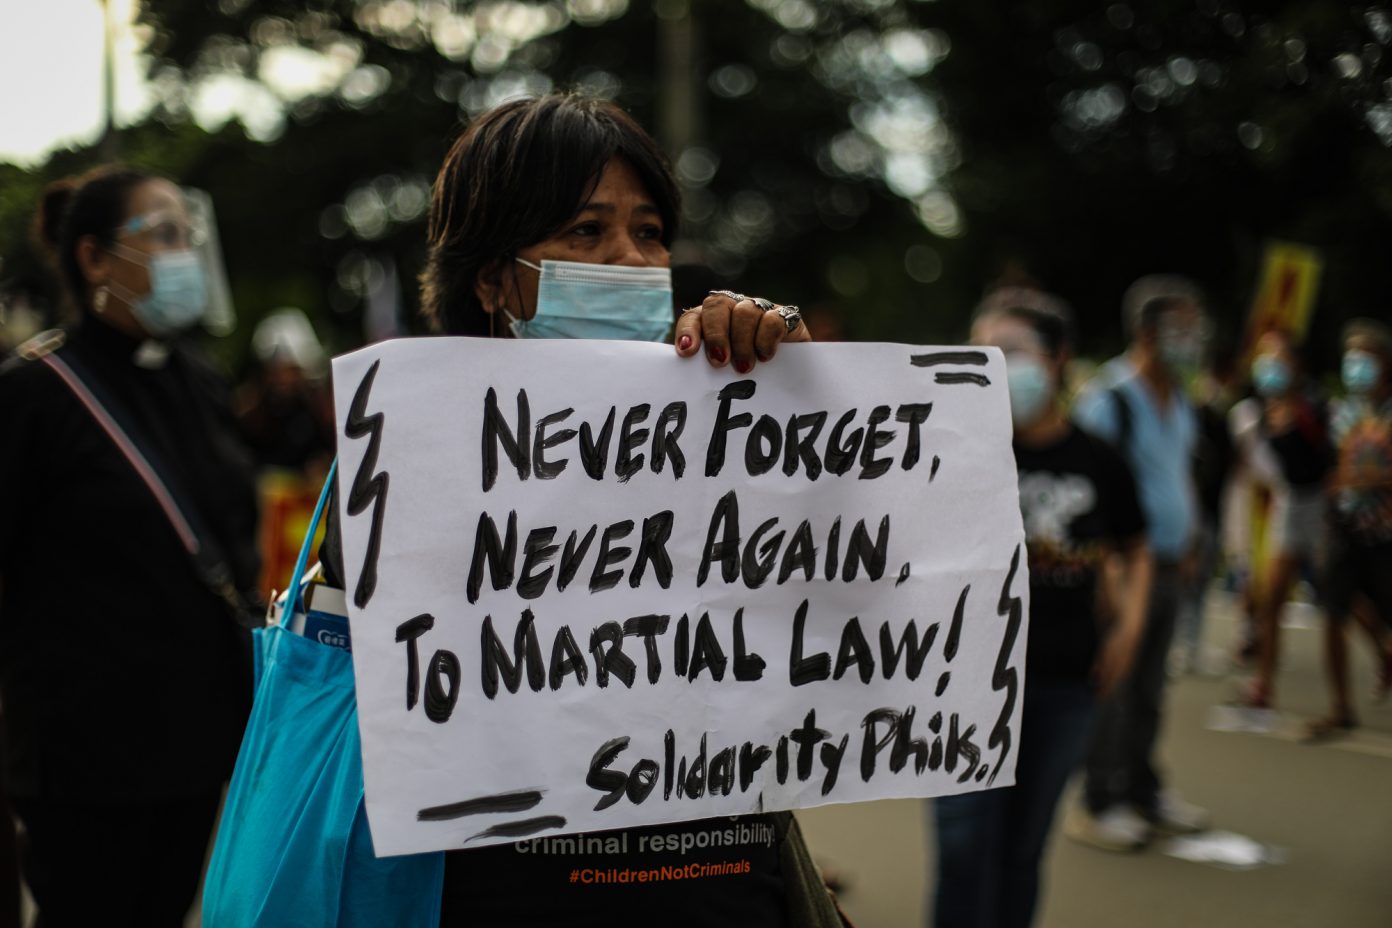 NEVER FORGET,
NEVER AGAIN.
TO MARTIAL LAW!
Solidarity Phils.
criminal responsibility!
#ChildrenNotCriminals